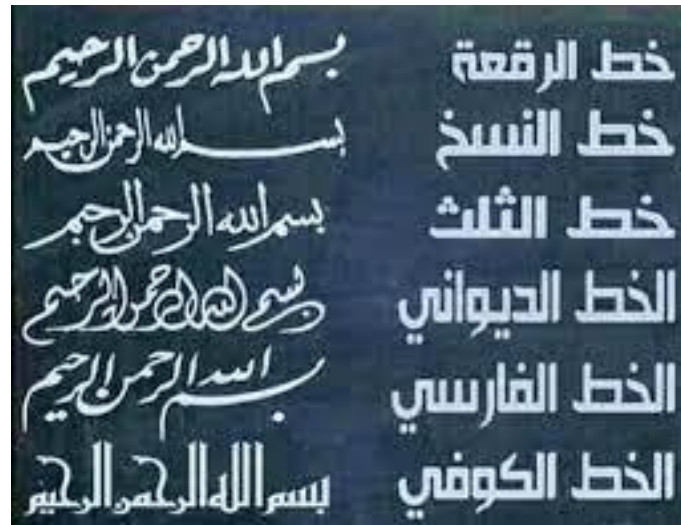 خط الرقعة بسم الله الرحمن الرحيم
خط النسخ بسم الله الرحمن الرحيم
خط الثلث بسم الله الرحمن الرحيم
الخط الديواني بسم الله الرحمن الرحيم
الخط الفارسي بسم الله الرحمن الرحيم
الخط الكوفي بسم الله الرحمن الرحيم